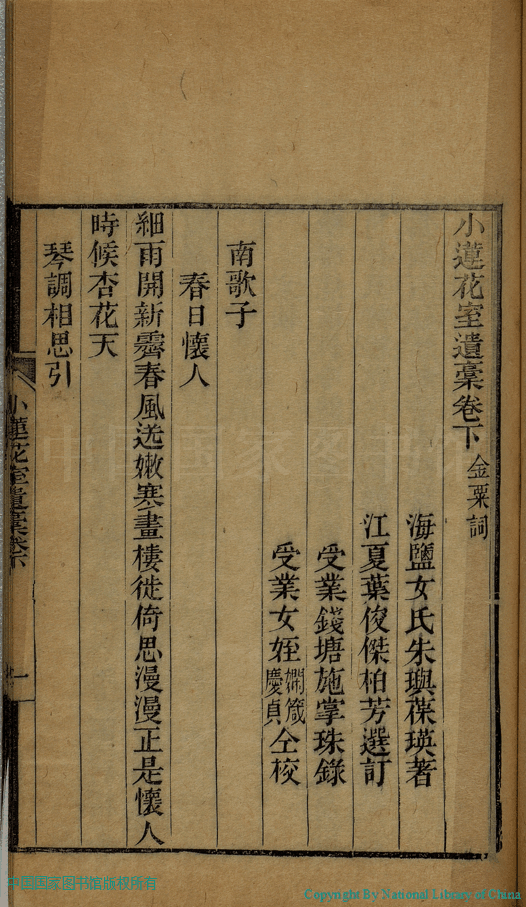 小蓮花室遺稾卷下 金粟詞
海鹽女氏朱璵葆瑛著
江夏葉俊傑柏芳選訂
受業錢塘施掌珠錄
受業女姪嫻箴慶貞仝校
南歌子
春日懷人
細雨開新霽春風送嫩寒畫樓徙倚思漫漫正是懷人
時候杏花天
琴調相思引
小蓮花室遺稾卷下
一
中国国家图书馆
中国国家图书馆版权所有
Copyright By National Library of China